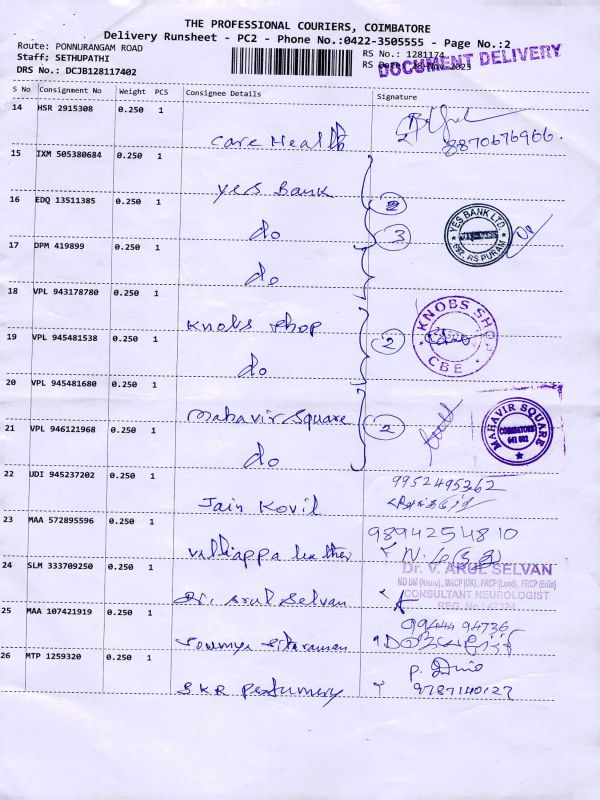 THE PROFESSIONAL COURIERS, COIMBATORE
Delivery Runsheet - PC2 - Phone No.:0422-3505555 - Page No.:2
Route: PONNURANGAM ROAD
RS No.: 1281174
Staff: SETHUPATHI
RS
DOCUMENT DELIVERY
DRS No.: DCJB128117402
S No Consignment No Weight PCS Consignee Details Signature
14 HSR 2915308 0.250 1
Care Health 8870676966.
15 IXM 505380684 0.250 1
Yes Bank
16 EDQ 13511385 0.250 1
do 3
YES BANK LTD.
RS PURAM
17 DPM 419899 0.250 1
do
18 VPL 943178780 0.250 1
Knobs Shop
KNOBS SHOP
CBE
19 VPL 945481538 0.250 1
do 2
20 VPL 945481680 0.250 1
Mahavir Square 2
MAHAVIR SQUARE
COIMBATORE
641 002
21 VPL 946121968 0.250 1
do
22 UDI 945237202 0.250 1
Jain Kovil 9952495362
23 MAA 572895596 0.250 1
9894254810
Valliappa
24 SLM 333709250 0.250 1
Dr. V. ARUL SELVAN
MD DM (Neuro), MRCP (UK), FRCP (Lond), FRCP (Edin)
CONSULTANT NEUROLOGIST
REG. No.: 47324
Dr. Arul Selvan
25 MAA 107421919 0.250 1
99444 94736
Sowmya Sitaraman
26 MTP 1259320 0.250 1
SKR Perfumery 9787140127